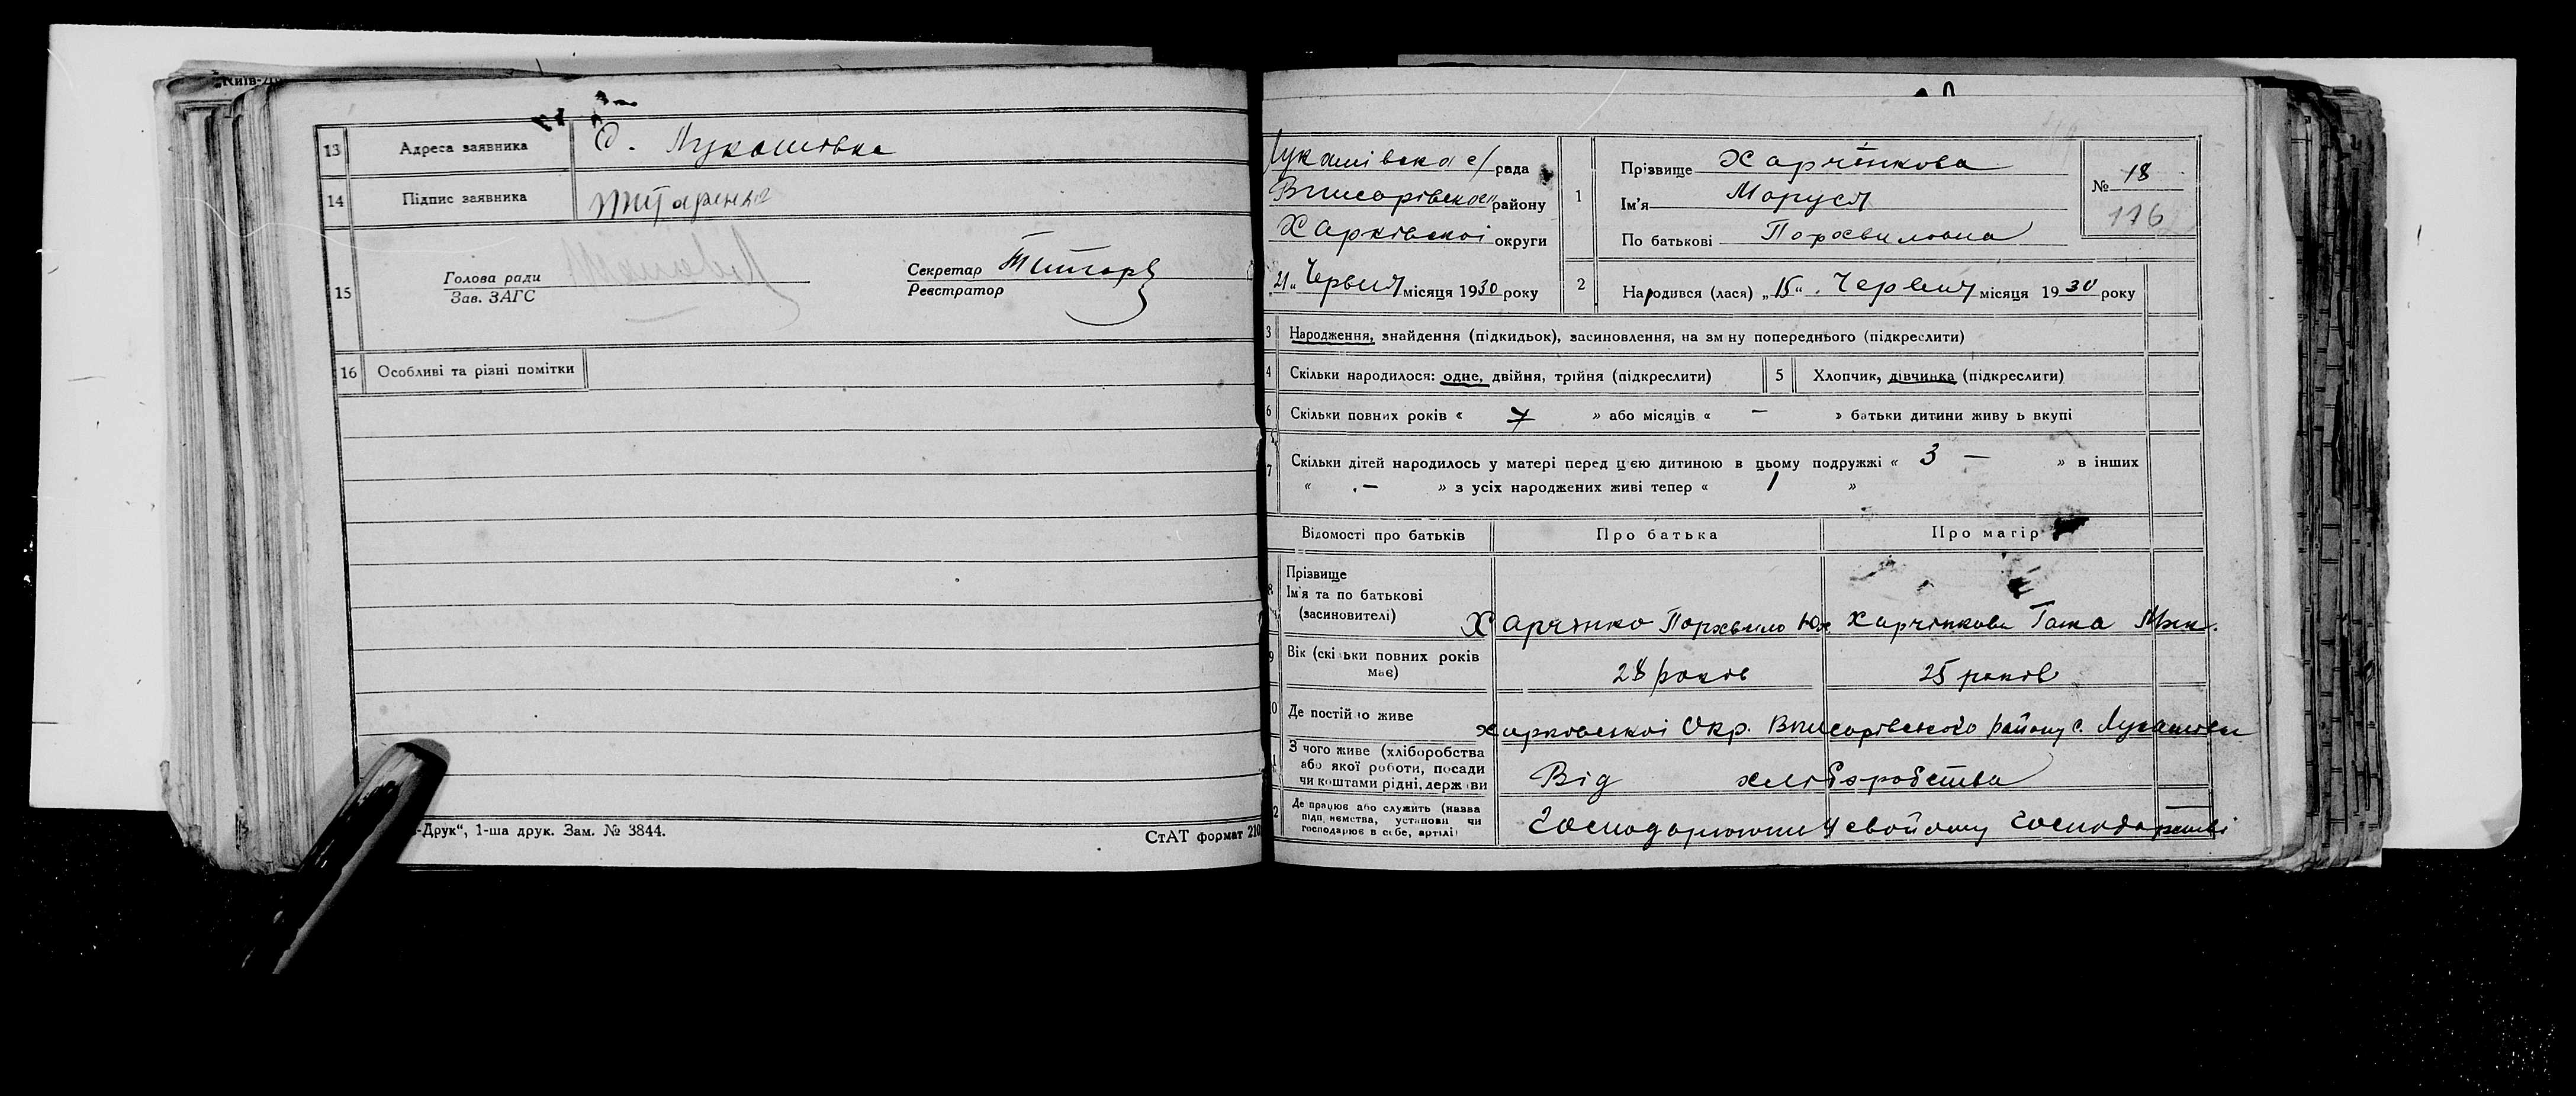 Київ-
13 Адреса заявника С. Лукашовка
14 Підпис заявника Титаренко
15 Голова ради
Зав. ЗАГС
Секретар Титар
Реєстратор
16 Особливі та різні помітки
-Друк“, 1-ша друк. Зам. № 3844.
СтАТ формат 210
Лукашівська с/ рада
Вписарівського району
Харківської округи
21 „ Червня місяця 1930 року
1 Прізвище Харченкова
Ім'я Маруся
По батькові Порхвиловна
№ 18
116
2 Народився (лася) „15“ Червня місяця 1930 року
3 Народження, знайдення (підкидьок), засиновлення, на зм ну попереднього (підкреслити)
4 Скільки народилося: одне, двійня, трійня (підкреслити) 5 Хлопчик, дівчинка (підкреслити)
6 Скільки повних років « 7 » або місяців « — » батьки дитини живу ь вкупі
7 Скільки дітей народилось у матері перед цією дитиною в цьому подружжі « 3 — » в інших
« — » з усіх народжених живі тепер « 1 »
Відомості про батьків Про батька Про матір
8 Прізвище
Ім'я та по батькові
(засиновителі)
Харченко Порхвило Юх. Харченкова Гаша Мик.
9 Вік (скільки повних років
має)
28 років 25 років
10 Де постійно живе Харковської Окр. Вписарівського району с. Лукашовки
11 З чого живе (хліборобства
або якої роботи, посади
чи коштами рідні, держави
Від хліборобства
12 Де працює або служить (назва
підприємства, установи чи
господарює в себе, артілі)
Господарюючи у свойому господарстві